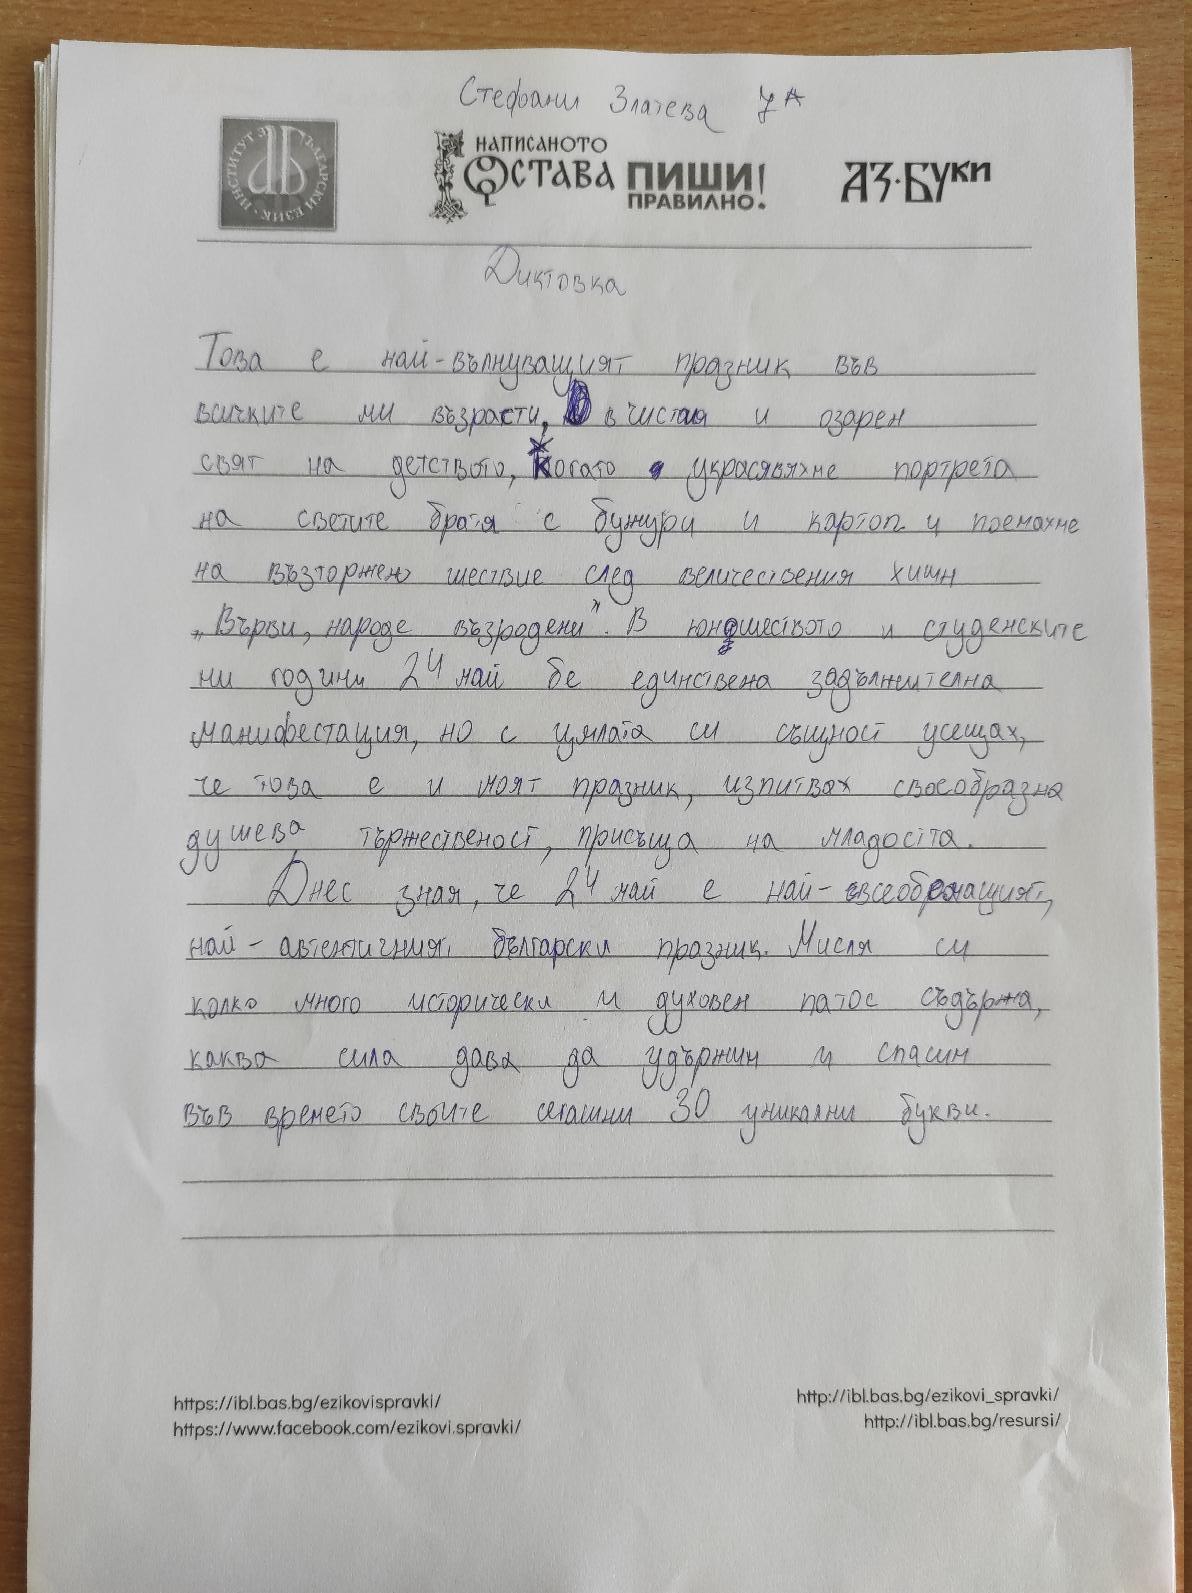 Стефани Златева 7А
ИНСТИТУТ ЗА БЪЛГАРСКИ ЕЗИК
НАПИСАНОТО
ОСТАВА ПИШИ!
ПРАВИЛНО.
АЗ·БУКИ
Диктовка
Това е най-вълнуващият празник във
всичките ми възрасти, в чистия и озарен
свят на детството, когато украсявяхме портрета
на светите братя с бужури и картоп и поемахме
на възторжено шествие след величествения химн
„Върви, народе възродени". В юношеството и студенските
ми години 24 май бе единствена задължителна
манифестация, но с цялата си същност усещах,
че това е и моят празник, изпитвах своеобразна
душева тържественост, присъща на младостта.
Днес зная, че 24 май е най-всеобемащият,
най-автентичният български празник. Мисля си
колко много исторически и духовен патос съдържа,
каква сила дава да удържим и спасим
във времето своите сегашни 30 уникални букви.
https://ibl.bas.bg/ezikovispravki/
https://www.facebook.com/ezikovi.spravki/
http://ibl.bas.bg/ezikovi_spravki/
http://ibl.bas.bg/resursi/